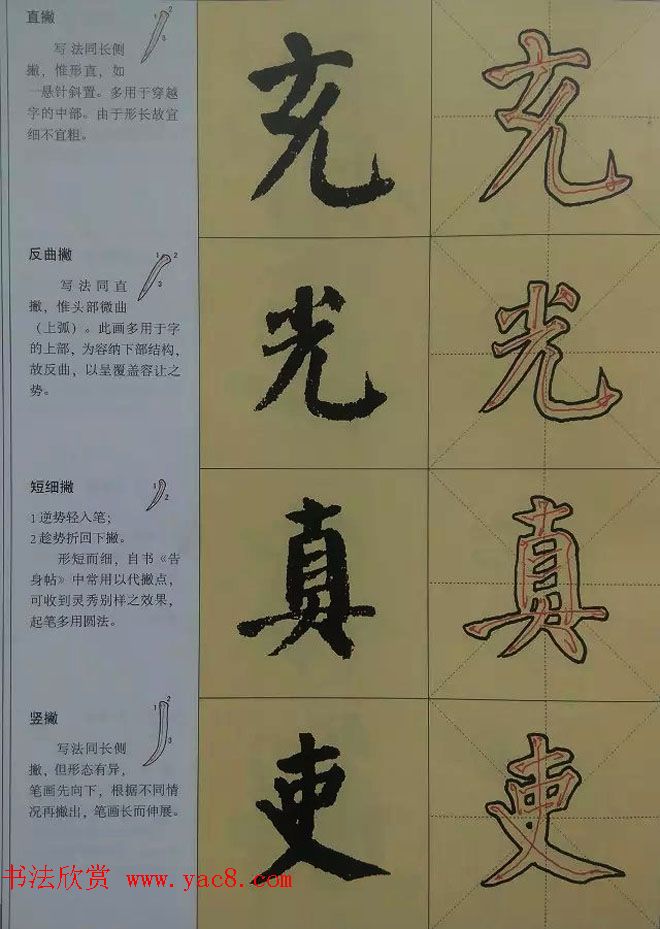 直撇
写法同长侧
撇，惟形直，如
一悬针斜置。多用于穿越
字的中部。由于形长故宜
细不宜粗。
充
反曲撇
写法同直
撇，惟头部微曲
（上弧）。此画多用于字
的上部，为容纳下部结构，
故反曲，以呈覆盖容让之
势。
光
短细撇
1逆势轻入笔；
2趁势折回下撇。
形短而细，自书《告
身帖》中常用以代撇点，
可收到灵秀别样之效果，
起笔多用圆法。
真
竖撇
写法同长侧
撇，但形态有异，
笔画先向下，根据不同情
况再撇出，笔画长而伸展。
吏
书法欣赏 www.yac8.com